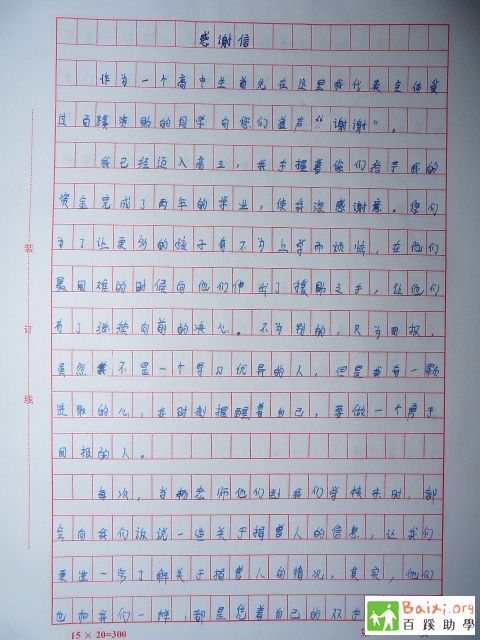 感谢信
作为一个高中生首先在这里我代表全体受
过百蹊资助的同学向您们道声“谢谢”。
我已经迈入高三,我手握着你们给予我的
资金完成了两年的学业,使我深感谢意。您们
为了让更多的孩子有不为上学而烦恼,在他们
最困难的时候向他们伸出了援助之手,让他们
有了继续向前的决心。不为别的,只为回报,
虽然我不是一个学习优异的人,但是我有一颗
进取的心,我时刻提醒着自己,要做一个勇于
回报的人。
每次,当杨老师他们到我们学校来时,都
会向我们诉说一些关于捐赠人的信息,让我们
更进一步了解关于捐赠人的情况,其实,他们
也和我们一样,都是凭着自己的双
装
订
线
15×20=300
Baixi.org
百蹊助學